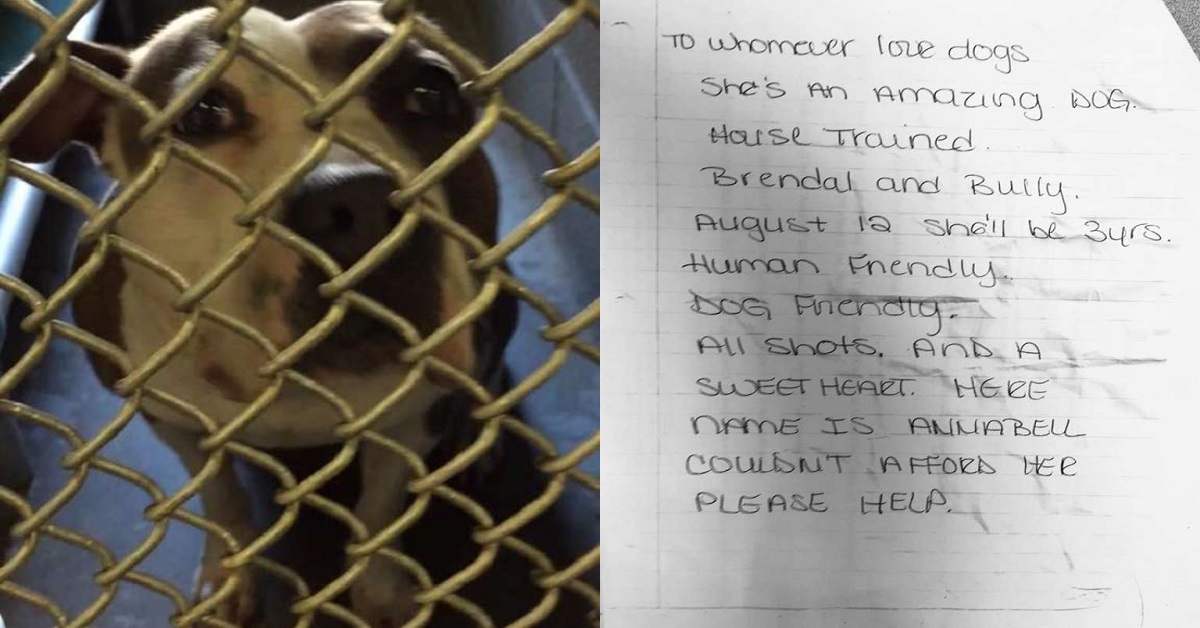 To whomever love dogs
She's An Amazing DOG.
House Trained.
Brendal and Bully.
August 12 she'll be 3yrs.
Human Friendly.
DOG Friendly.
All shots. AND A
SWEET HEART. HERE
NAME IS ANNABELL
COULDN'T AFFORD HER
PLEASE HELP.